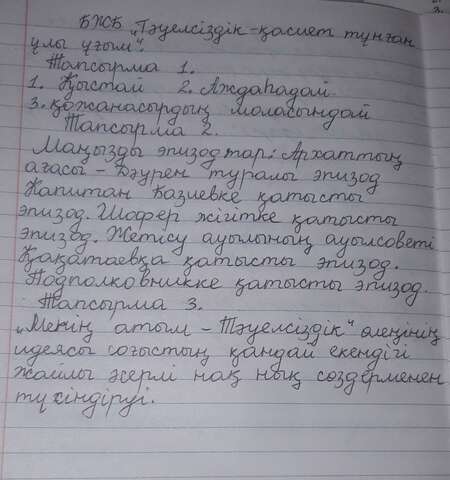 БЖБ „Тәуелсіздік-қасиет тұнған
ұлы ұғым".
Тапсырма 1.
1. Қыстай 2. Аждаһадай
3. қожанасырдың моласындай
Тапсырма 2.
Маңызды эпизодтар: Архаттың
ағасы - Бәурен туралы эпизод
Капитан Базиевке қатысты
эпизод. Шофер жігітке қатысты
эпизод. Жетісу ауылының ауылсоветі
Қақатаевқа қатысты эпизод.
Подполковникке қатысты эпизод.
Тапсырма 3.
„Менің атым - Тәуелсіздік" өлеңінің
идеясы соғыстың қандай екендігі
жайлы әсерлі нақ нық сөздерменен
түсіндіруі.